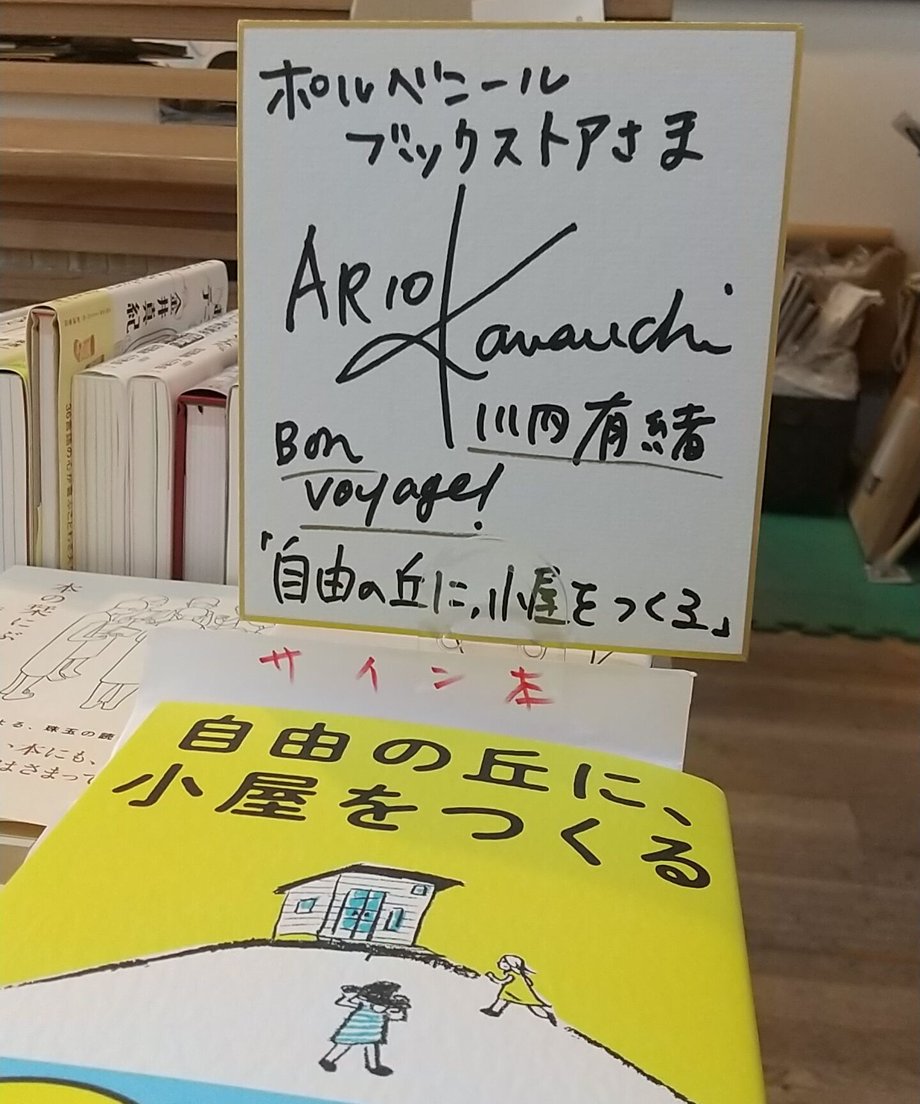 ポルベニール
ブックストアさま
ARIO Kawauchi
川内有緒
Bon
voyage!
「自由の丘に、小屋をつくる」
サイン本
自由の丘に、
小屋をつくる
金井真紀
本の栞にぶ
よる、珠玉の読
本にも、
はさまって